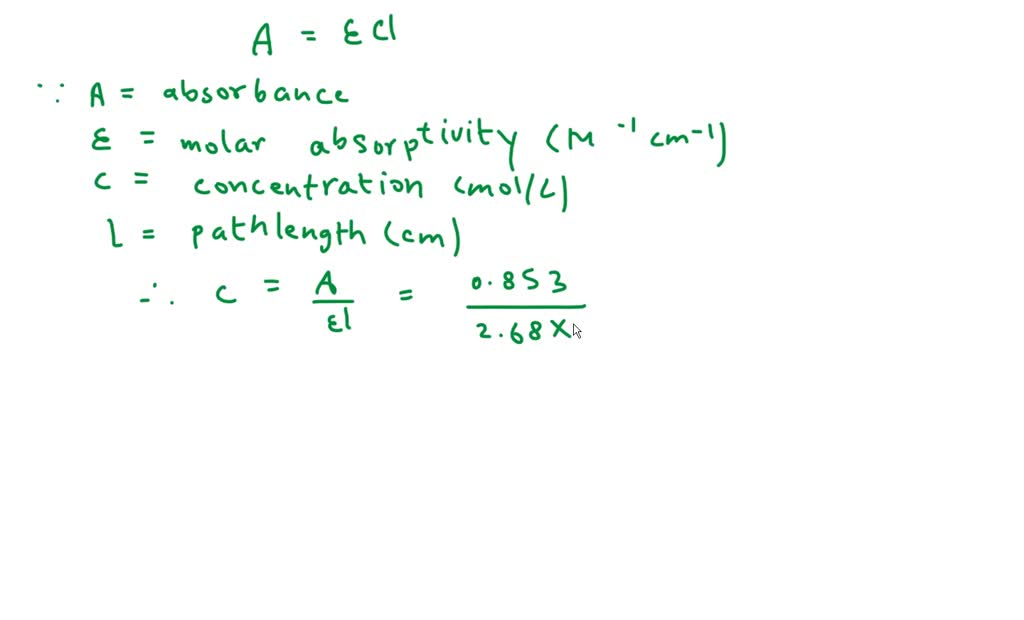 A = εCl
∵ A = absorbance
ε = molar absorptivity (M⁻¹ cm⁻¹)
c = concentration (mol/L)
l = pathlength (cm)
∴ c = A/εl = 0.853/2.68×